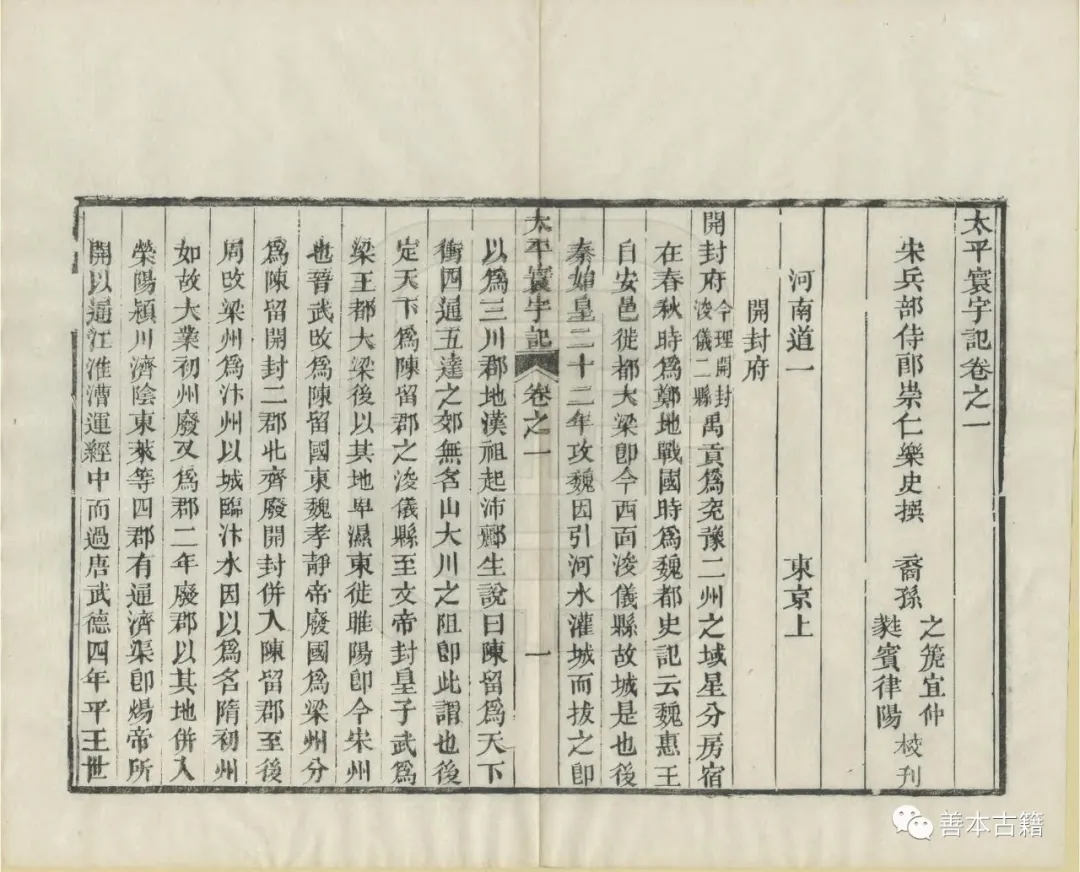 太平寰宇記卷之一
宋兵部侍郎崇仁樂史撰 裔孫 之箎宜仲 蕤賓律陽 校刊
河南道一 東京上
開封府
開封府今理開封浚儀二縣禹貢爲兖豫二州之域星分房宿
在春秋時爲鄭地戰國時爲魏都史記云魏惠王
自安邑徙都大梁即今西面浚儀縣故城是也後
秦始皇二十二年攻魏因引河水灌城而拔之即
太平寰宇記 卷之一 一
以爲三川郡地漢祖起沛酈生說曰陳留爲天下
衝四通五達之郊無名山大川之阻即此謂也後
定天下爲陳留郡之浚儀縣至文帝封皇子武爲
梁王都大梁後以其地卑濕東徙睢陽即今宋州
也晉武改爲陳留國東魏孝靜帝廢國爲梁州分
爲陳留開封二郡北齊廢開封併入陳留郡至後
周改梁州爲汴州以城臨汴水因以爲名隋初州
如故大業初州廢又爲郡二年廢郡以其地併入
滎陽潁川濟陰東萊等四郡有通濟渠即煬帝所
開以通江淮漕運經中而過唐武德四年平王世
善本古籍